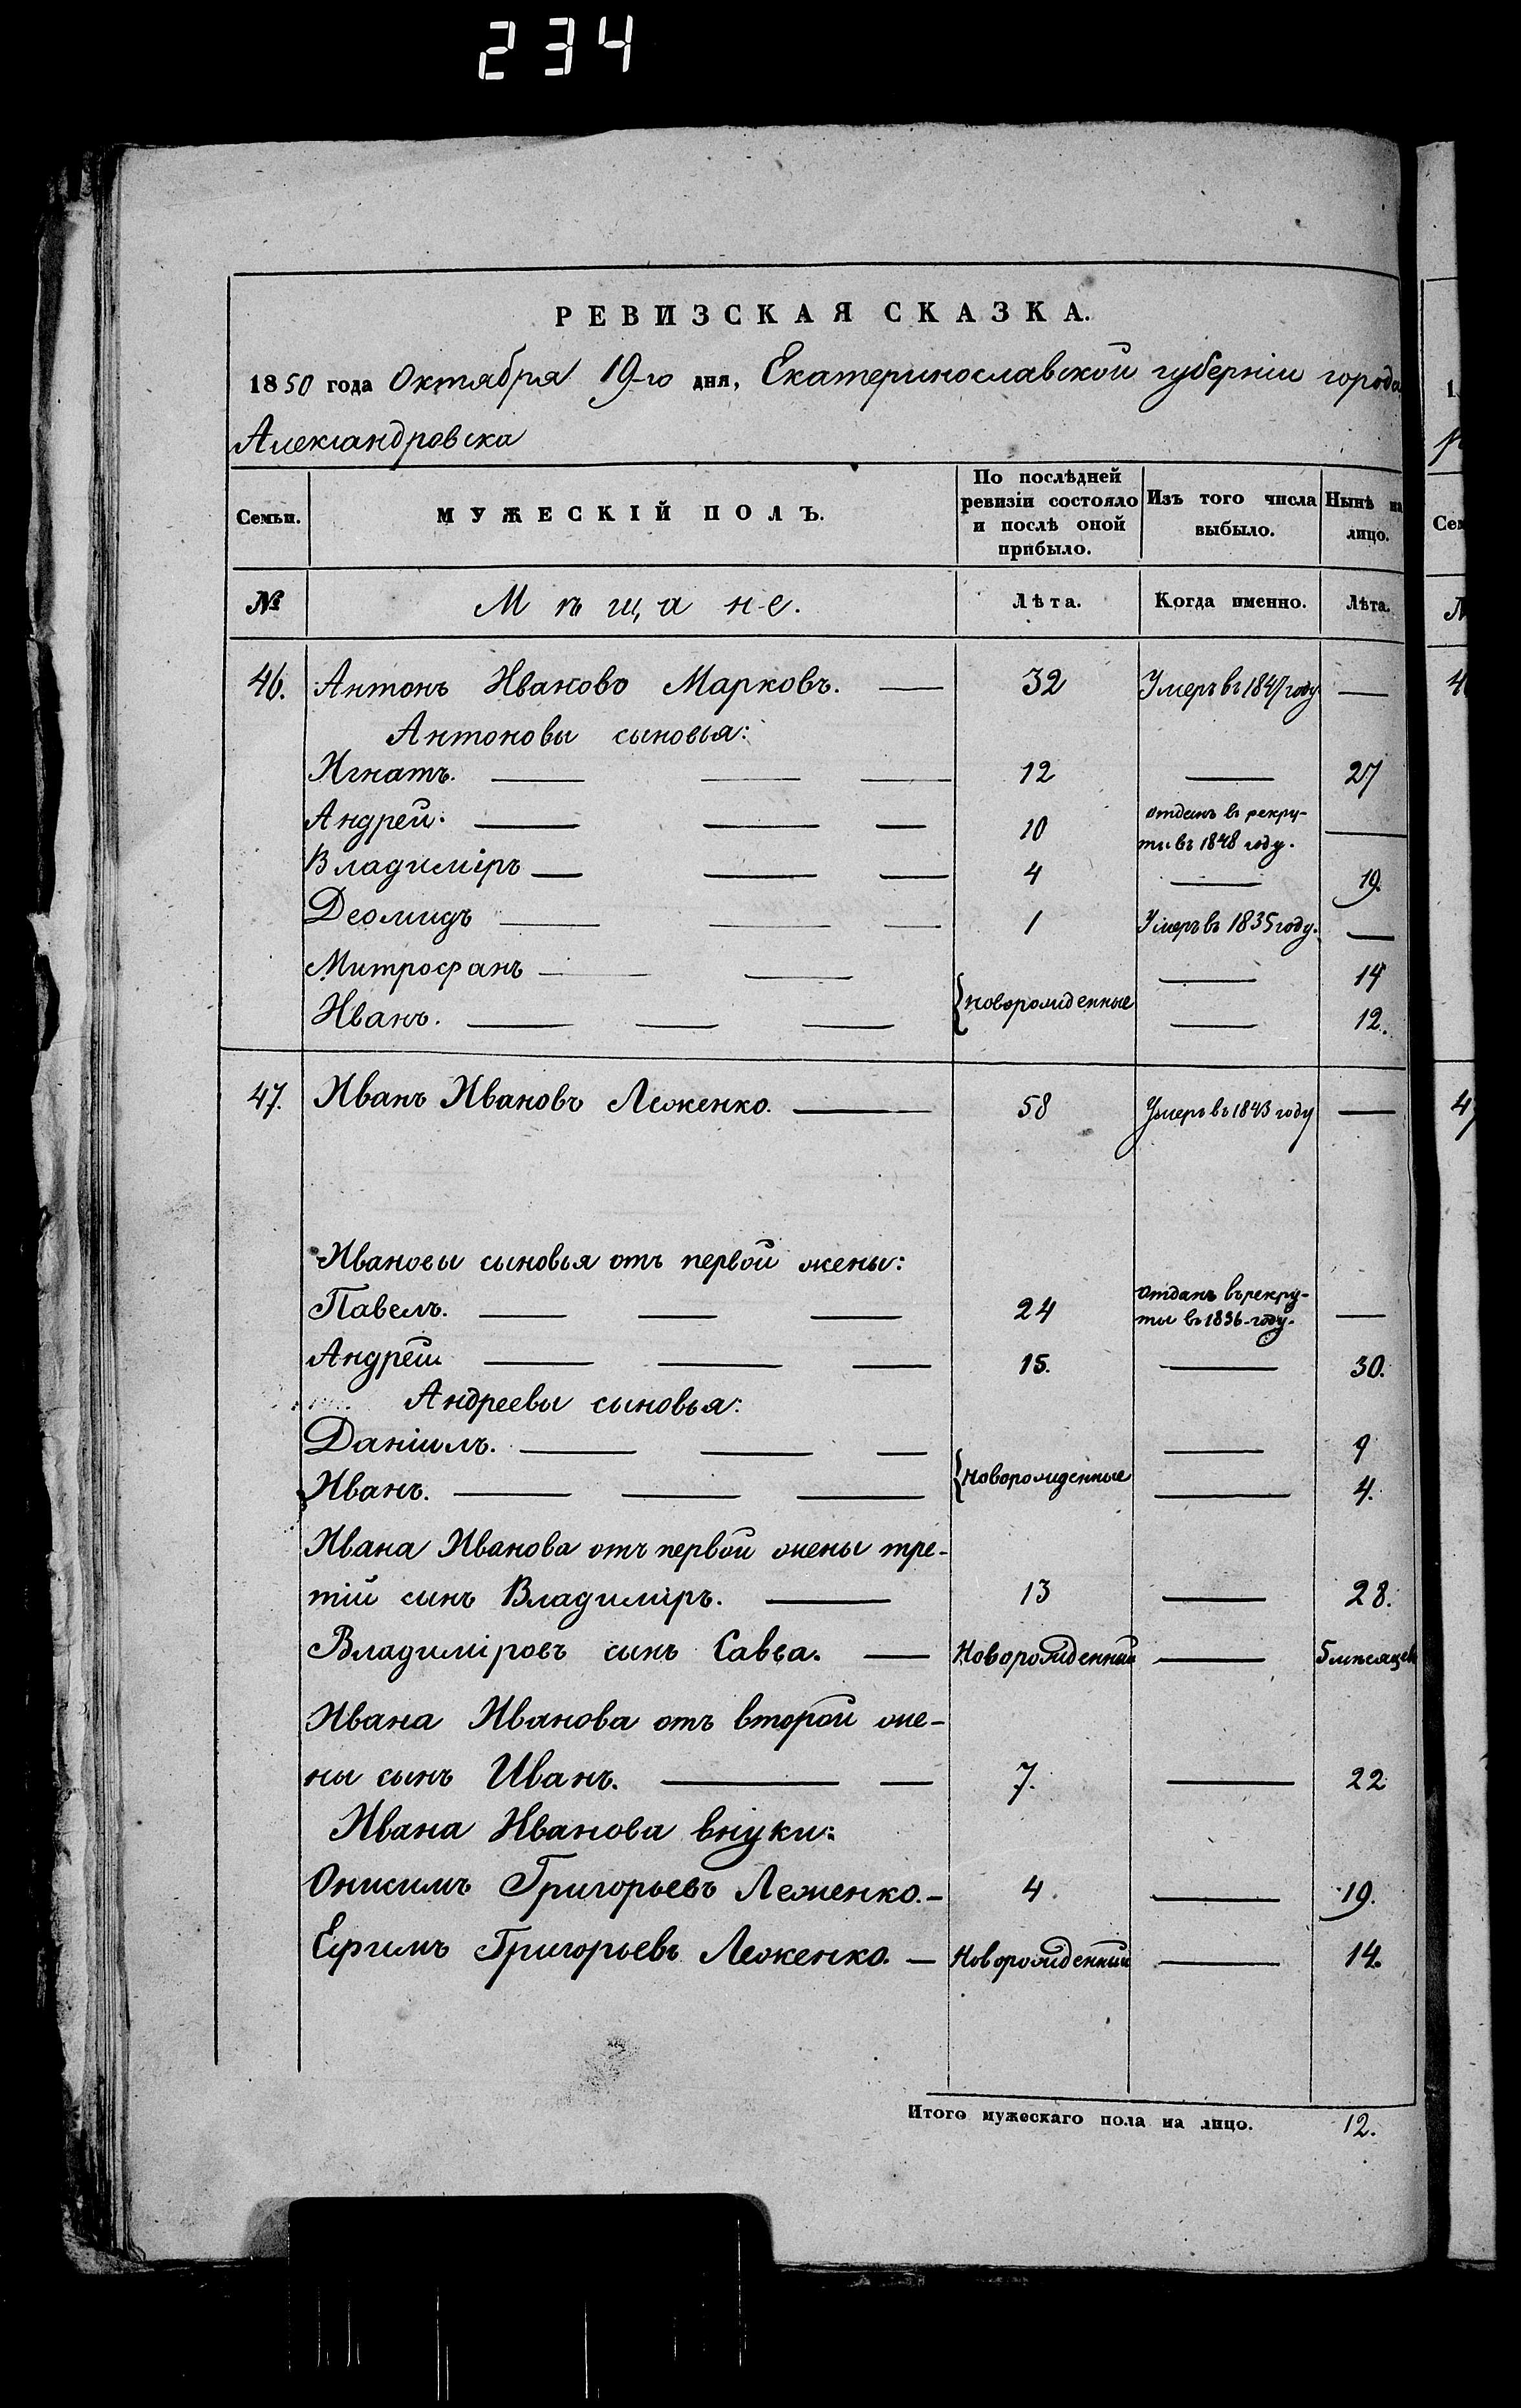 234
РЕВИЗСКАЯ СКАЗКА.
1850 года Октября 19-го дня, Екатеринославской губерніи города
Александровска
Семьи. МУЖЕСКІЙ ПОЛЪ. По послѣдней ревизіи состояло и послѣ оной прибыло. Изъ того числа выбыло. Нынѣ на лицо.
№ Мѣщане. Лѣта. Когда именно. Лѣта.
46. Антонъ Ивановъ Марковъ. — 32 Умеръ въ 1847 году —
Антоновы сыновья:
Игнатъ. — — — 12 — 27
Андрей. — — — 10 отданъ въ рекру-
ты въ 1848 году. —
Владиміръ — — — 4 — 19.
Деомидъ — — — 1 Умеръ въ 1835 году. —
Митрофанъ — — {новорожденные — 14
Иванъ. — — — — 12.
47. Иванъ Ивановъ Леженко. — 58 Умеръ въ 1843 году —
Ивановы сыновья отъ первой жены:
Павелъ. — — — 24 отданъ въ рекру-
ты въ 1836-году. —
Андрей. — — — 15. — 30.
Андреевы сыновья:
Даніилъ. — — — {новорожденные — 9
Иванъ. — — — — 4.
Ивана Иванова отъ первой жены тре-
тій сынъ Владиміръ. — 13 — 28.
Владиміровъ сынъ Савва. — Новорожденный — 5 мѣсяцевъ
Ивана Иванова отъ второй же-
ны сынъ Иванъ. — — 7. — 22
Ивана Иванова внуки:
Онисимъ Григорьевъ Леженко. — 4. — 19.
Ефимъ Григорьевъ Леженко. — Новорожденный — 14.
Итого мужескаго пола на лицо. 12.